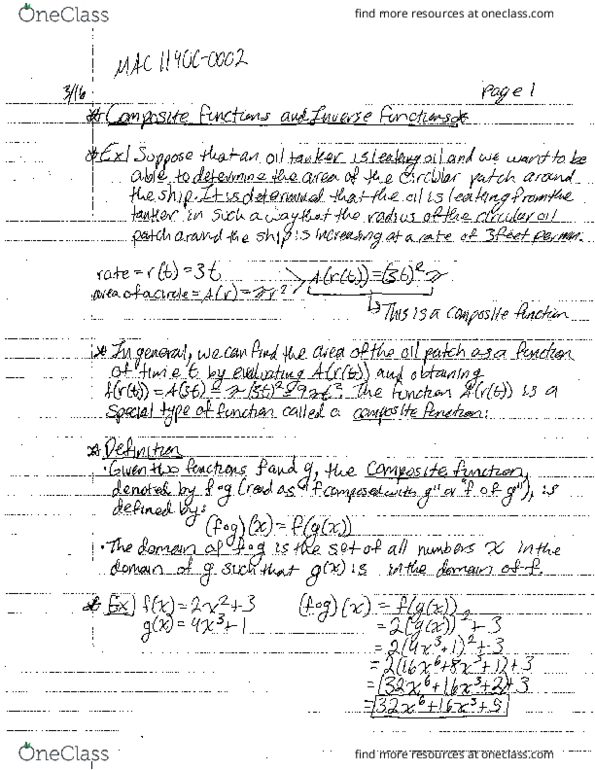 OneClass
find more resources at oneclass.com
MAC 1140C-0002
3/16
page 1
* Composite Functions and Inverse Functions *
* Ex) Suppose that an oil tanker is leaking oil and we want to be
able to determine the area of the circular patch around
the ship. It is determined that the oil is leaking from the
tanker in such a way that the radius of the circular oil
patch around the ship is increasing at a rate of 3 feet per min.
rate = r(t) = 3t
area of a circle = A(r) = πr² > A(r(t)) = (3t)²π
↳ This is a composite function
* In general, we can find the area of the oil patch as a function
of time t by evaluating A(r(t)) and obtaining
A(r(t)) = A(3t) = π(3t)² = 9πt². The function A(r(t)) is a
special type of function called a composite function.
* Definition
• Given two functions f and g, the composite function,
denoted by f∘g (read as "f composed with g" or "f of g"), is
defined by:
(f∘g)(x) = f(g(x))
• The domain of f∘g is the set of all numbers x in the
domain of g such that g(x) is in the domain of f.
* Ex) f(x) = 2x² + 3 (f∘g)(x) = f(g(x))
g(x) = 4x³ + 1 = 2(g(x))² + 3
= 2(4x³ + 1)² + 3
= 2(16x⁶ + 8x³ + 1) + 3
= (32x⁶ + 16x³ + 2) + 3
= 32x⁶ + 16x³ + 5
OneClass
find more resources at oneclass.com